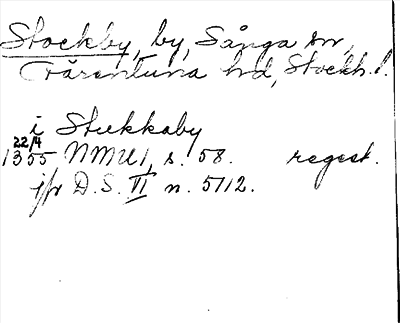 Stockby, by, Sånga sn,
Färentuna hd, Stockh. l.
i Stukkaby
22/4
1355 NMU1, s. 58. regest.
jfr D.S. VI n. 5112.